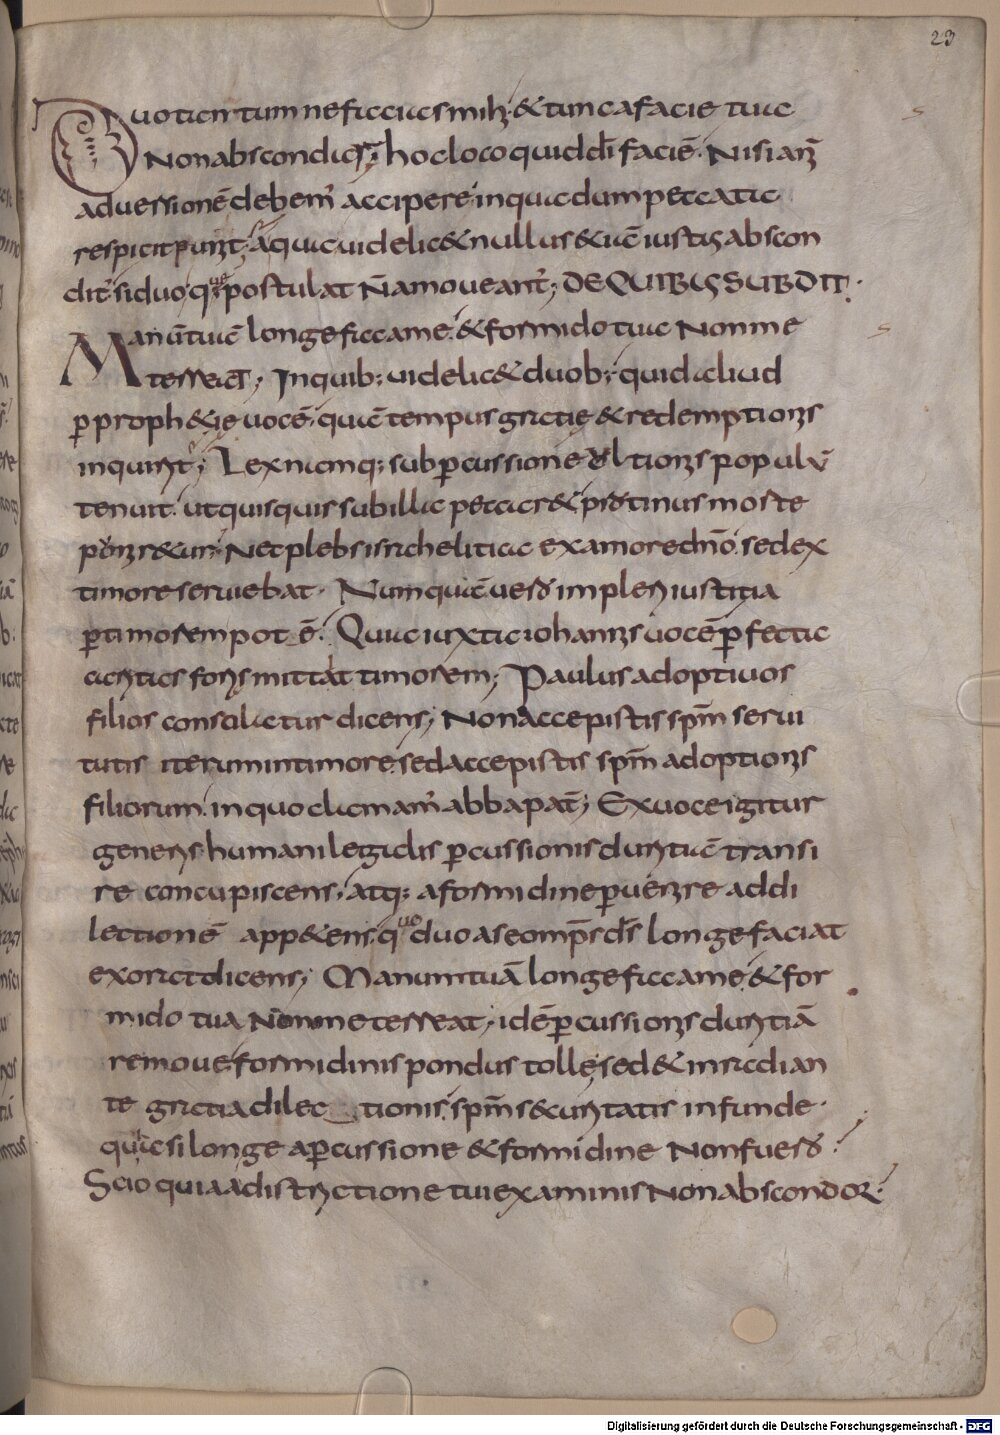 23
Duo tantum ne facias mihi & tunc a facie tua
Non abscondar; hoc loco quid dī faciē. Nisi anim
aduersionē debem' accipere in qua dum peccata
respicit punit; a qua uidelic& nullus & iā iustus abscon
dit' si duo quę postulat n̄ amoueant'; DE QUIBUS SUBDIT.
Manū tuā longe fac a me. & formido tua Non me
terreat; In quib; uidelic& duob; quid aliud
ꝑ proph&ę uocē, quā tempus gratię & redemptionis
inquirit; Lex namq; sub ꝑcussione ultionis populū
tenuit. ut quisquis sub illa peccar& protinus morte
puniretur; Nec plebs israhelitica ex amore dn̄o sed ex
timore seruiebat. Numquā uero impleri iustitia
ꝑ timorem pot ē. Quia iuxta iohannis uocē ꝑfecta
caritas foris mittat timorem; Paulus adoptiuos
filios consulatur dicens; Non accepistis sp̄m serui
tutis iterum in timore. sed accepistis sp̄m adoptionis
filiorum. in quo clamam' abba pat̄; Ex uoce igitur
generis humani legalis ꝑcussionis duritiā transi
re concupiscens. atq; a formidine ꝑuenire ad di
lectionē app&ens. quę duo a se omp̄s d̄s longe faciat
exorat dicens; Manum tuā longe fac a me. & for
mido tua Non me terreat. id ē ꝑcussionis duritiā
remoue. formidinis pondus tolle. sed & in radian
te gratia dilec tionis. sp̄m securitatis infunde.
quia si longe a ꝑcussione & formidine Non fuero.
Scio quia a districtione tui examinis Non abscondor.
Digitalisierung gefördert durch die Deutsche Forschungsgemeinschaft - DFG